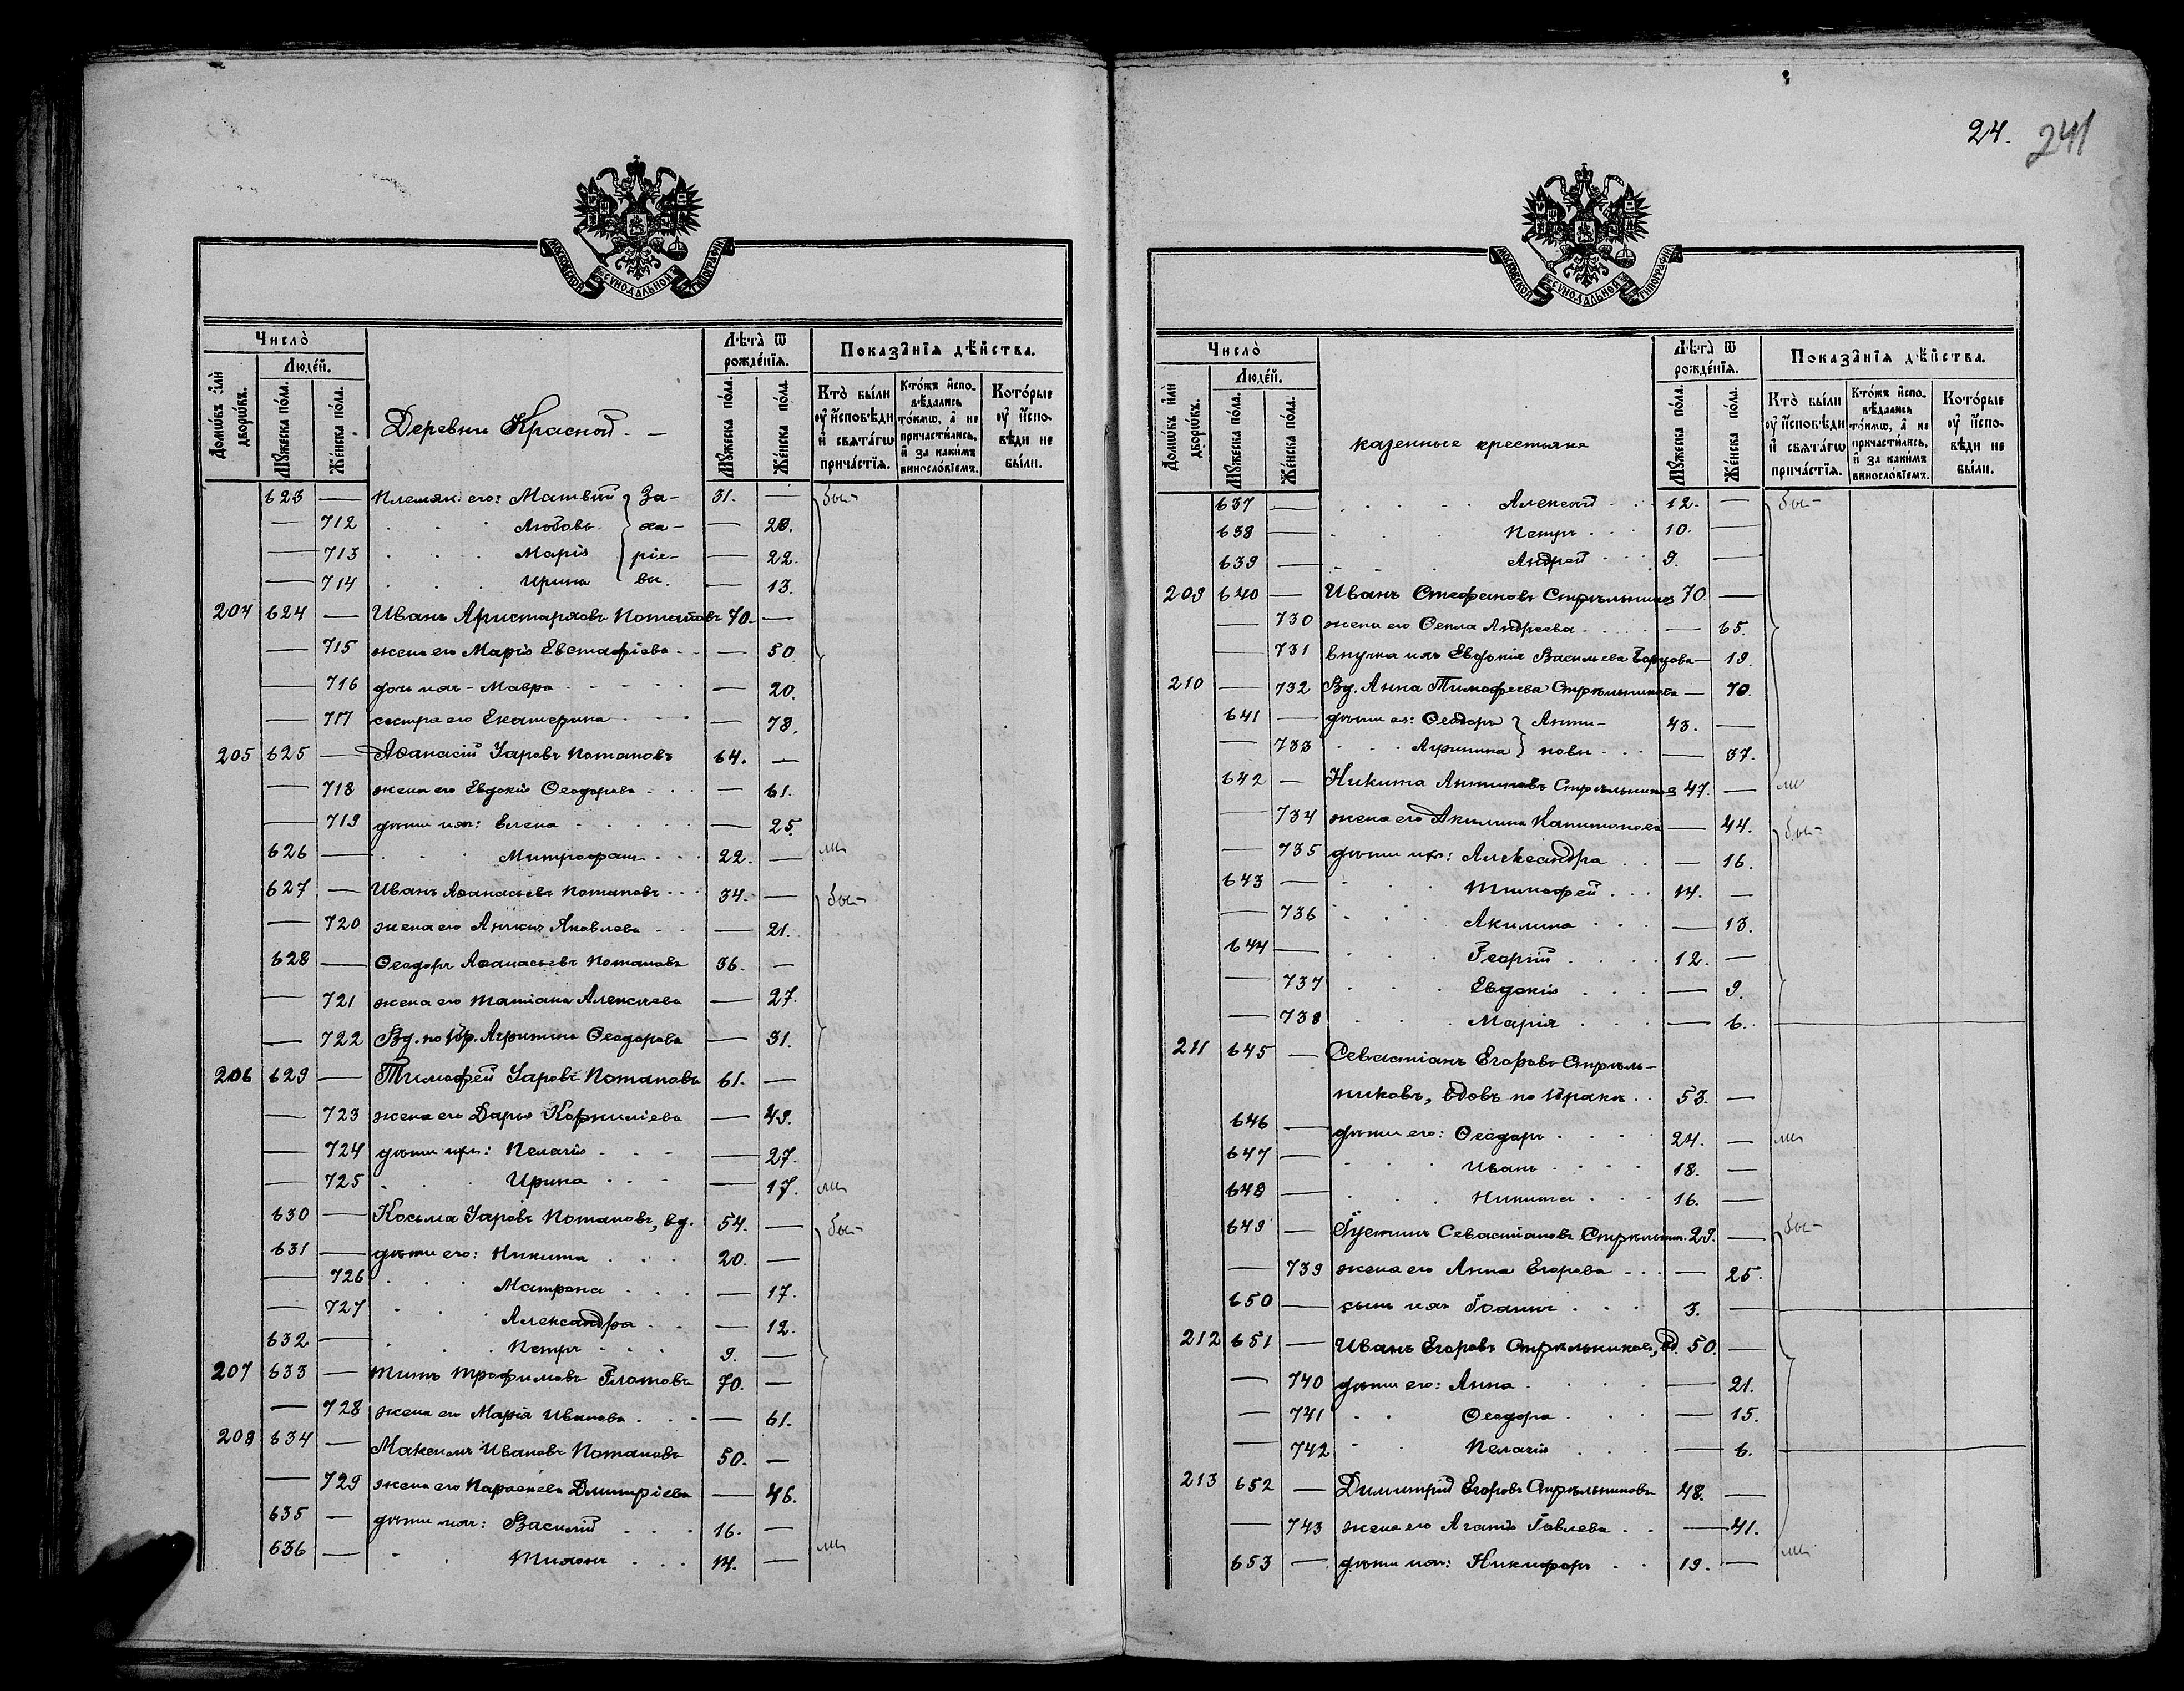 24. 241
МОСКОВСКОЙ СУНОДАЛЬНОЙ ТИПОГРАФІИ
Число̀
Домѡ́въ и҆лѝ дворѡ́въ.
Людéй.
Мꙋ́жеска по́ла.
Же́нска по́ла.
Деревни Красной. —
Лѣ́та ѿ рожде́нїѧ.
Мꙋ́жеска по́ла.
Же́нска по́ла.
Показа̑нїѧ дѣ́йства.
Кто̀ бы́ли ᲂу҆ и҆сповѣ́ди и҆ свѧта́гѡ прича́стїѧ.
Кто́жъ и҆сповѣ́дались то́кмѡ, а҆ не причасти́лись, и҆ за каки́мъ винослóвїемъ.
Кото́рые ᲂу҆ и҆сповѣ́ди не бы́ли.
623 — Племян. его: Матвѣй За- 31. — бы-
— 712 Любовь ха- — 28.
— 713 Марія ріе- — 22.
— 714 Ирина вы. — 13.
204 624 — Иванъ Аристарховъ Потаповъ 70. —
— 715 жена его Марія Евстафіева — 50.
— 716 дочь ихъ - Мавра — 20.
— 717 сестра его Екатерина — 78.
205 625 — Аѳанасій Уаровъ Потаповъ 64. —
— 718 жена его Евдокія Ѳеодорова — 61.
— 719 дѣти ихъ: Елена — 25.
626 — Митрофанъ 22. — ли
627 — Иванъ Аѳанасьевъ Потаповъ 34. — бы-
— 720 жена его Яковлева — 21.
628 — Ѳеодоръ Аѳанасьевъ Потаповъ 36. —
— 721 жена его Татіана Алексѣева — 27.
— 722 Вд. по 1 бр. Агрипина Ѳеодорова — 31.
206 629 — Тимофей Уаровъ Потаповъ 61. —
— 723 жена его Дарья Корниліева — 49.
— 724 дѣти ихъ: Пелагія — 27.
— 725 Ирина — 17. ли
630 — Косьма Уаровъ Потаповъ, вд. 54. — бы-
631 — дѣти его: Никита 20. —
— 726 Матрона — 17.
— 727 Александра — 12.
632 — Петръ 9. —
207 633 — Титъ Трофимовъ Глотовъ 70. —
— 728 жена его Марія Иванова — 61.
208 634 — Максимъ Ивановъ Потаповъ 50. —
— 729 жена его Параскева Димитріева — 46.
635 — дѣти ихъ: Василій 16. —
636 — Тихонъ 14. — ли
МОСКОВСКОЙ СУНОДАЛЬНОЙ ТИПОГРАФІИ
Число̀
Домѡ́въ и҆лѝ дворѡ́въ.
Людéй.
Мꙋ́жеска по́ла.
Же́нска по́ла.
казенные крестьяне
Лѣ́та ѿ рожде́нїѧ.
Мꙋ́жеска по́ла.
Же́нска по́ла.
Показа̑нїѧ дѣ́йства.
Кто̀ бы́ли ᲂу҆ и҆сповѣ́ди и҆ свѧта́гѡ прича́стїѧ.
Кто́жъ и҆сповѣ́дались то́кмѡ, а҆ не причасти́лись, и҆ за каки́мъ винослóвїемъ.
Кото́рые ᲂу҆ и҆сповѣ́ди не бы́ли.
637 — Алексѣй 12. — бы-
638 — Петръ 10. —
639 — Андрей 9. —
209 640 — Иванъ Стефановъ Стрѣльников 70. —
— 730 жена его Ѳекла Андреева — 65.
— 731 внучка ихъ Евдокія Васильева — 19.
210 — 732 Вд. Анна Тимофеева Стрѣльникова — 70.
641 — дѣти ея: Ѳеодоръ Анти- 43. —
— 733 Агрипина повы — 37.
642 — Никита Антиповъ Стрѣльников 47. — ли
— 734 жена его Акилина Капитонова — 44. бы-
— 735 дѣти ихъ: Александра — 16.
643 — Тимофей 14. —
— 736 Акилина — 13.
644 — Георгій 12. —
— 737 Евдокія — 9.
— 738 Марія — 6.
211 645 — Севастіанъ Егоровъ Стрѣль-
никовъ, вдовъ по 1 бракѣ 53. —
646 — дѣти его: Ѳеодоръ 24. — ли
647 — Иванъ 18. —
648 — Никита 16. —
649 — Іустинъ Севастіановъ Стрѣльник. 29. — бы-
— 739 жена его Анна Егорова — 25.
650 — сынъ ихъ Іоаннъ 3. —
212 651 — Иванъ Егоровъ Стрѣльниковъ, вд. 50. —
— 740 дѣти его: Анна — 21.
— 741 Ѳеодора — 15.
— 742 Пелагія — 6.
213 652 — Димитрій Егоровъ Стрѣльниковъ 48. —
— 743 жена его Агаѳія — 41.
653 — дѣти ихъ: Никифоръ 19. — ли